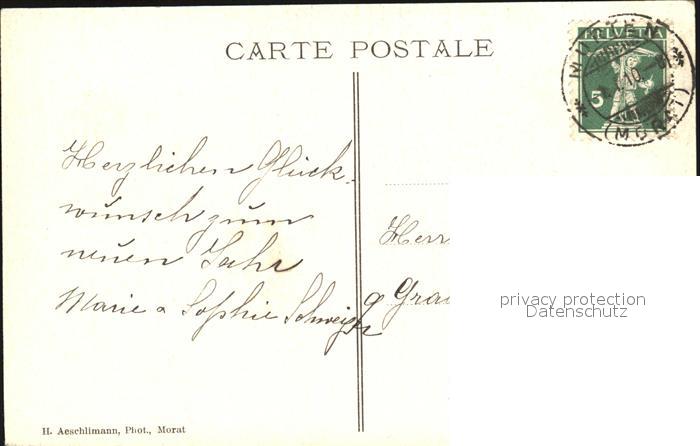 CARTE POSTALE
HELVETIA
5
MURTEN
(MORAT)
Herzlichen Glück-
wunsch zum
neuen Jahr
Marie & Sophie
Herr
privacy protection
Datenschutz
H. Aeschlimann, Phot., Morat